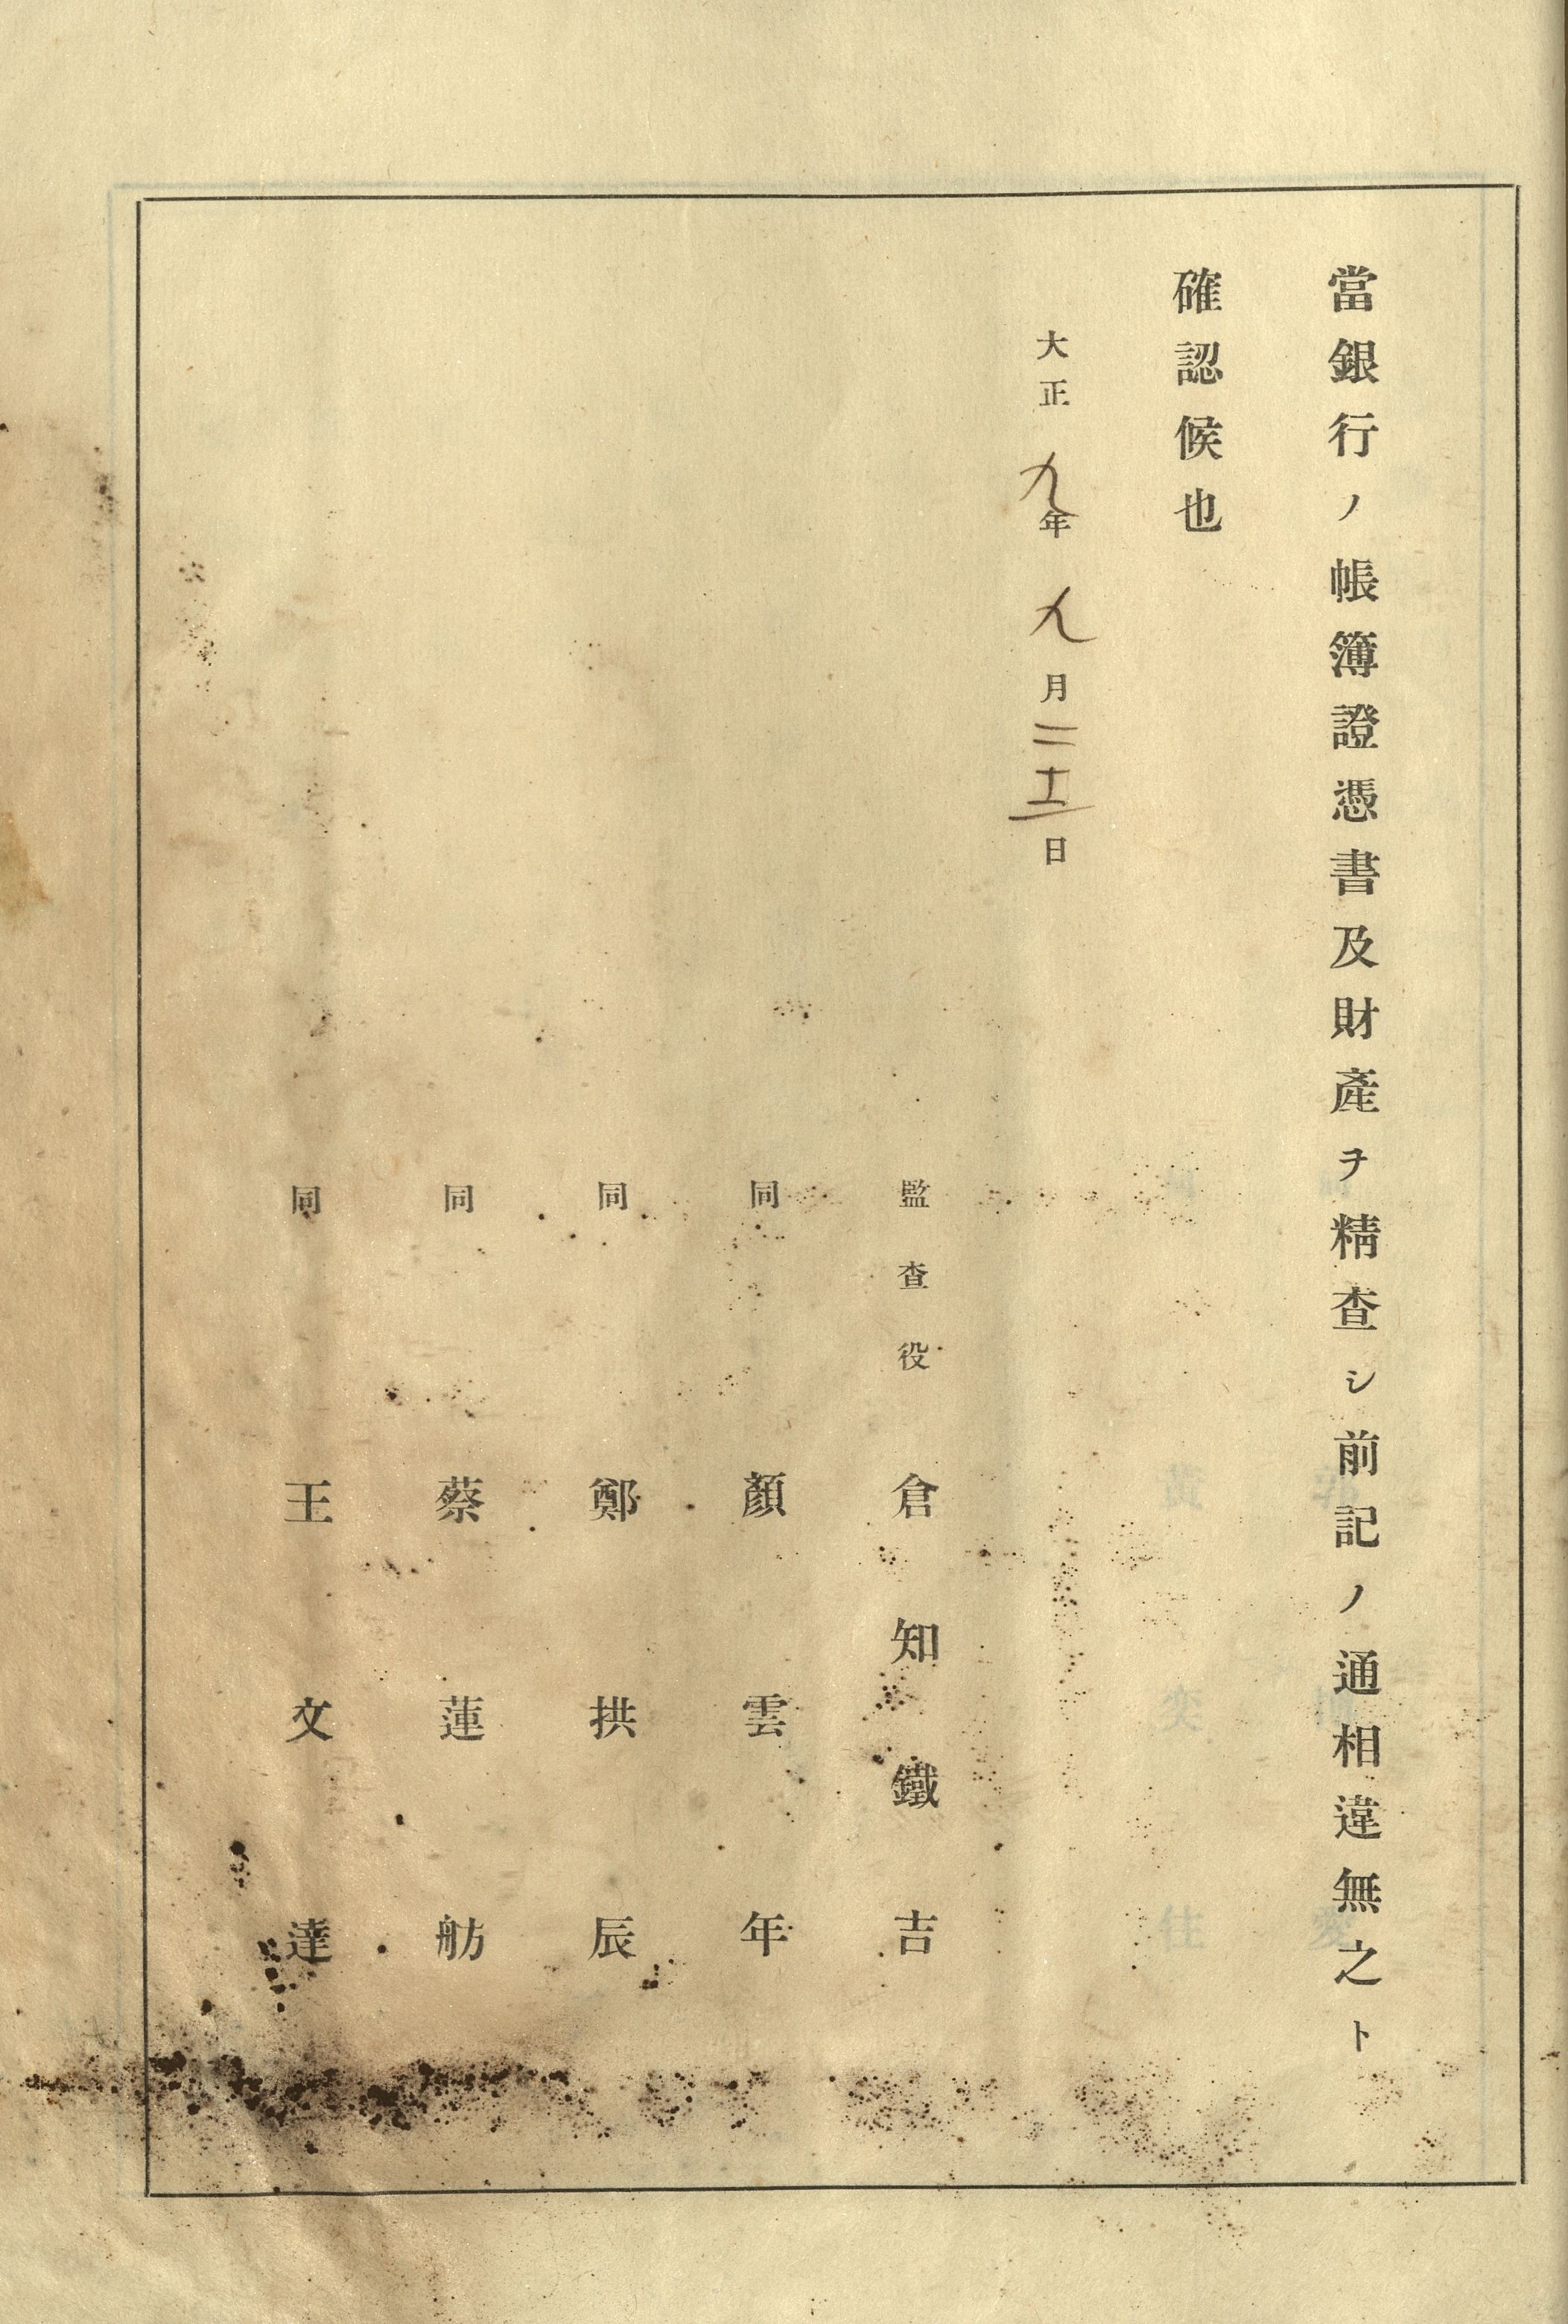 當銀行ノ帳簿證憑書及財產ヲ精査シ前記ノ通相違無之ト
確認候也
大正九年九月二十二日
監査役 倉知鐵吉
同 顏雲年
同 鄭拱辰
同 蔡蓮舫
同 王文達